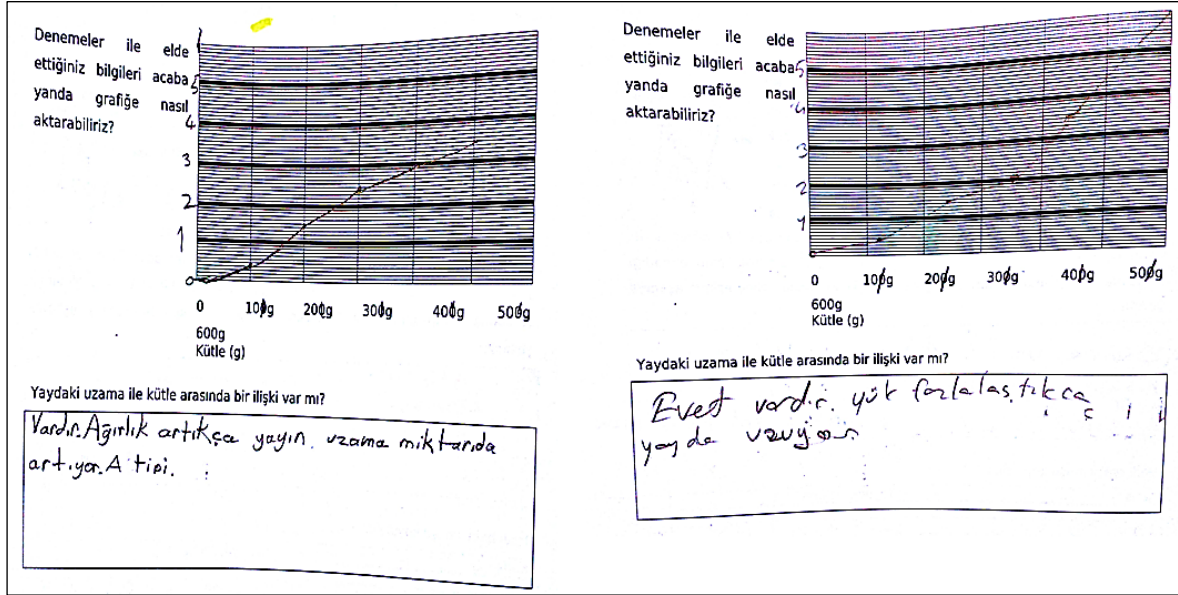 Denemeler ile elde
ettiğiniz bilgileri acaba
yanda grafiğe nasıl
aktarabiliriz?
5
4
3
2
1
0
0 100g 200g 300g 400g 500g
600g
Kütle (g)
Yaydaki uzama ile kütle arasında bir ilişki var mı?
Vardır. Ağırlık artıkça yayın uzama miktarıda
artıyor. A tipi.
Denemeler ile elde
ettiğiniz bilgileri acaba
yanda grafiğe nasıl
aktarabiliriz?
5
4
3
2
1
0 100g 200g 300g 400g 500g
600g
Kütle (g)
Yaydaki uzama ile kütle arasında bir ilişki var mı?
Evet vardır. yük fazlalaştıkca
yayda uzuyor